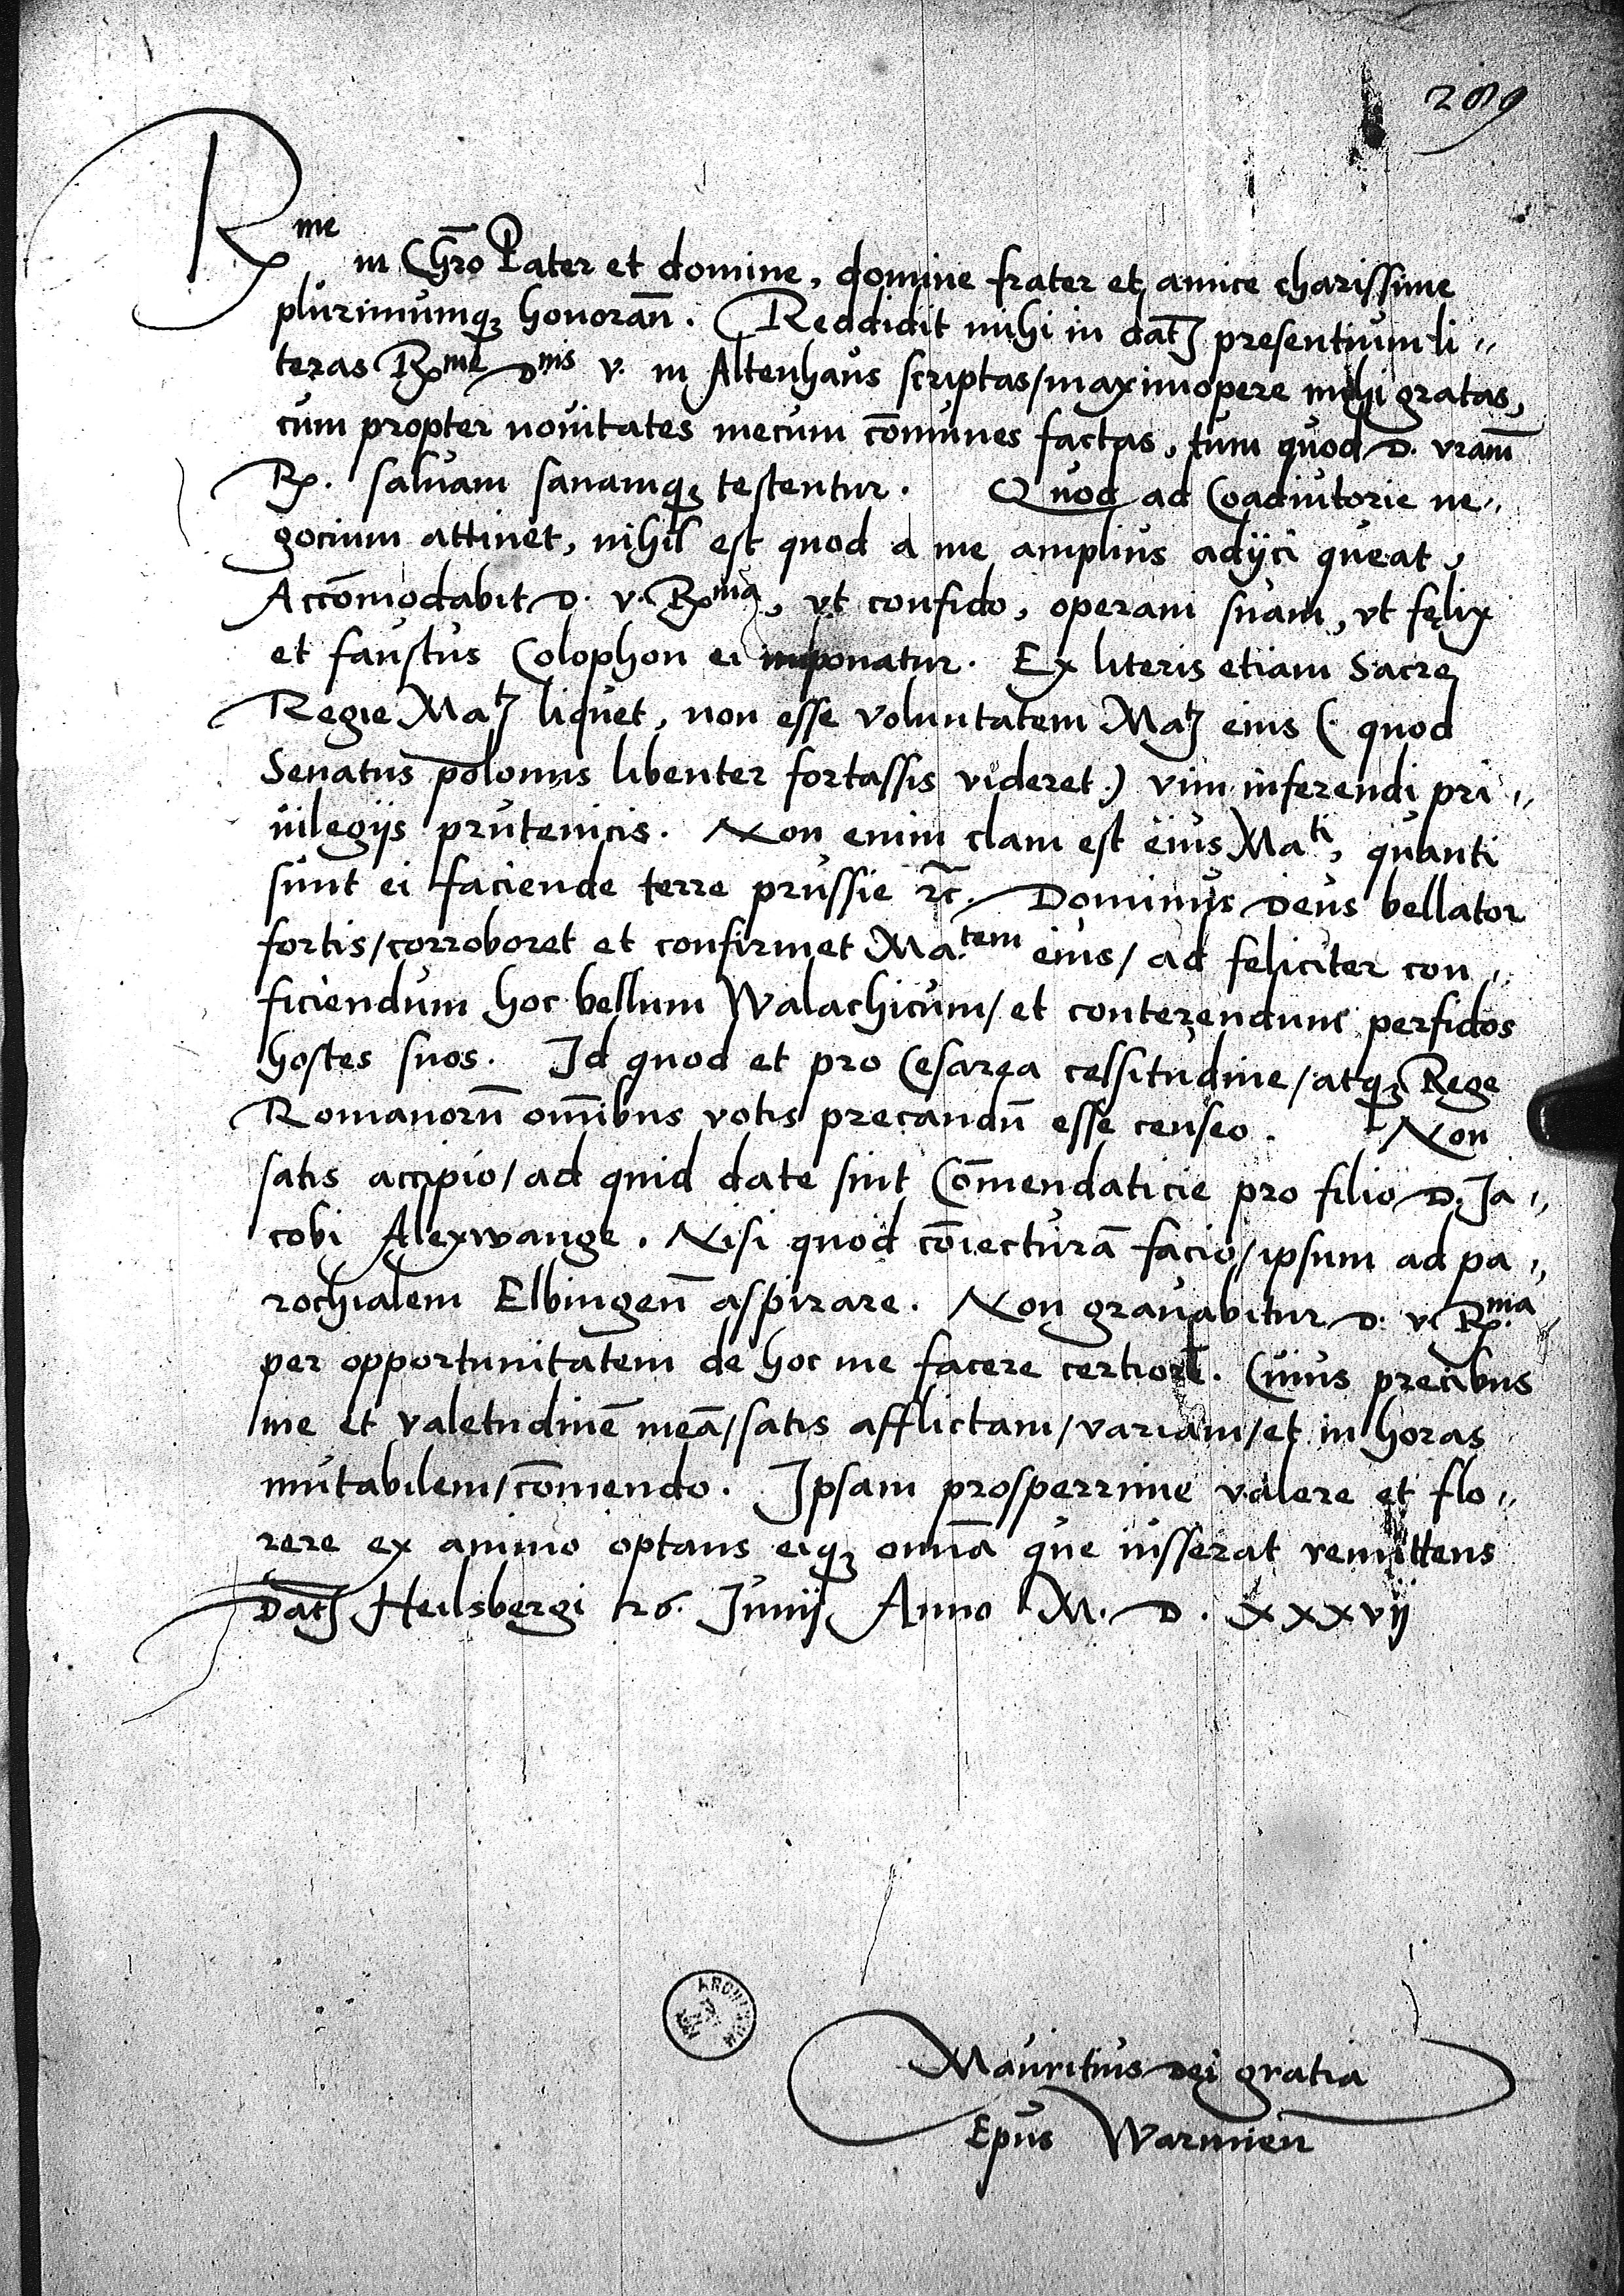 289
Rme
in Chro Pater et domine, domine frater et amice charissime
plurimumq3 honoran̄. Reddidit mihi in dat3 presentium li„
teras Rme Dnis v. in Altenhaus scriptas/maximopere mihi gratas,
cum propter nouitates mecum com̄unes factas, tum quod D. vram̄
R. saluam sanamq3 testentur. Quod ad Coadiutorie ne„
gocium attinet, nihil est quod a me amplius adijci queat,
Accom̄odabit D. v. Rma, vt confido, operam suam, vt fęlix
et faustus Colophon ei imponatur. Ex literis etiam Sacre
Regie Mat3 liquet, non esse voluntatem Mat3 eius (. quod
Senatus polonus libenter fortassis videret.) vim inferendi pri„
uilegijs prutenicis. Non enim clam est eius Mati, quanti
sunt ei faciende terre prussie rc̄. Dominus Deus bellator
fortis/corroboret et confirmet Ma.tem eius/ ad feliciter con„
ficiendum hoc bellum Walachicum/ et conterendum perfidos
hostes suos. Id quod et pro Cesarea celsitudine/atq3 Rege
Romanorū om̄ibus votis precandū esse censeo. Non
satis accipio/ad quid date sint Com̄endaticie pro filio D. Ja„
cobi Alexwange. Nisi quod cōiecturā facio/ipsum ad pa„
rochialem Elbingen̄ aspirare. Non grauabitur D. v. R.ma
per opportunitatem de hoc me facere certiorē. Cuius precibus
me et valetudinē meā/satis afflictam/variam/et in horas
mutabilem/com̄endo. Ipsam prosperrime valere et flo„
rere ex animo optans eiq3 omnā que iusserat remittens
Dat3 Heilsbergi 26. Junij Anno M. D. XXXvij
ARCHIWUM
Mauritius Dei gratia
Epūs Warmien